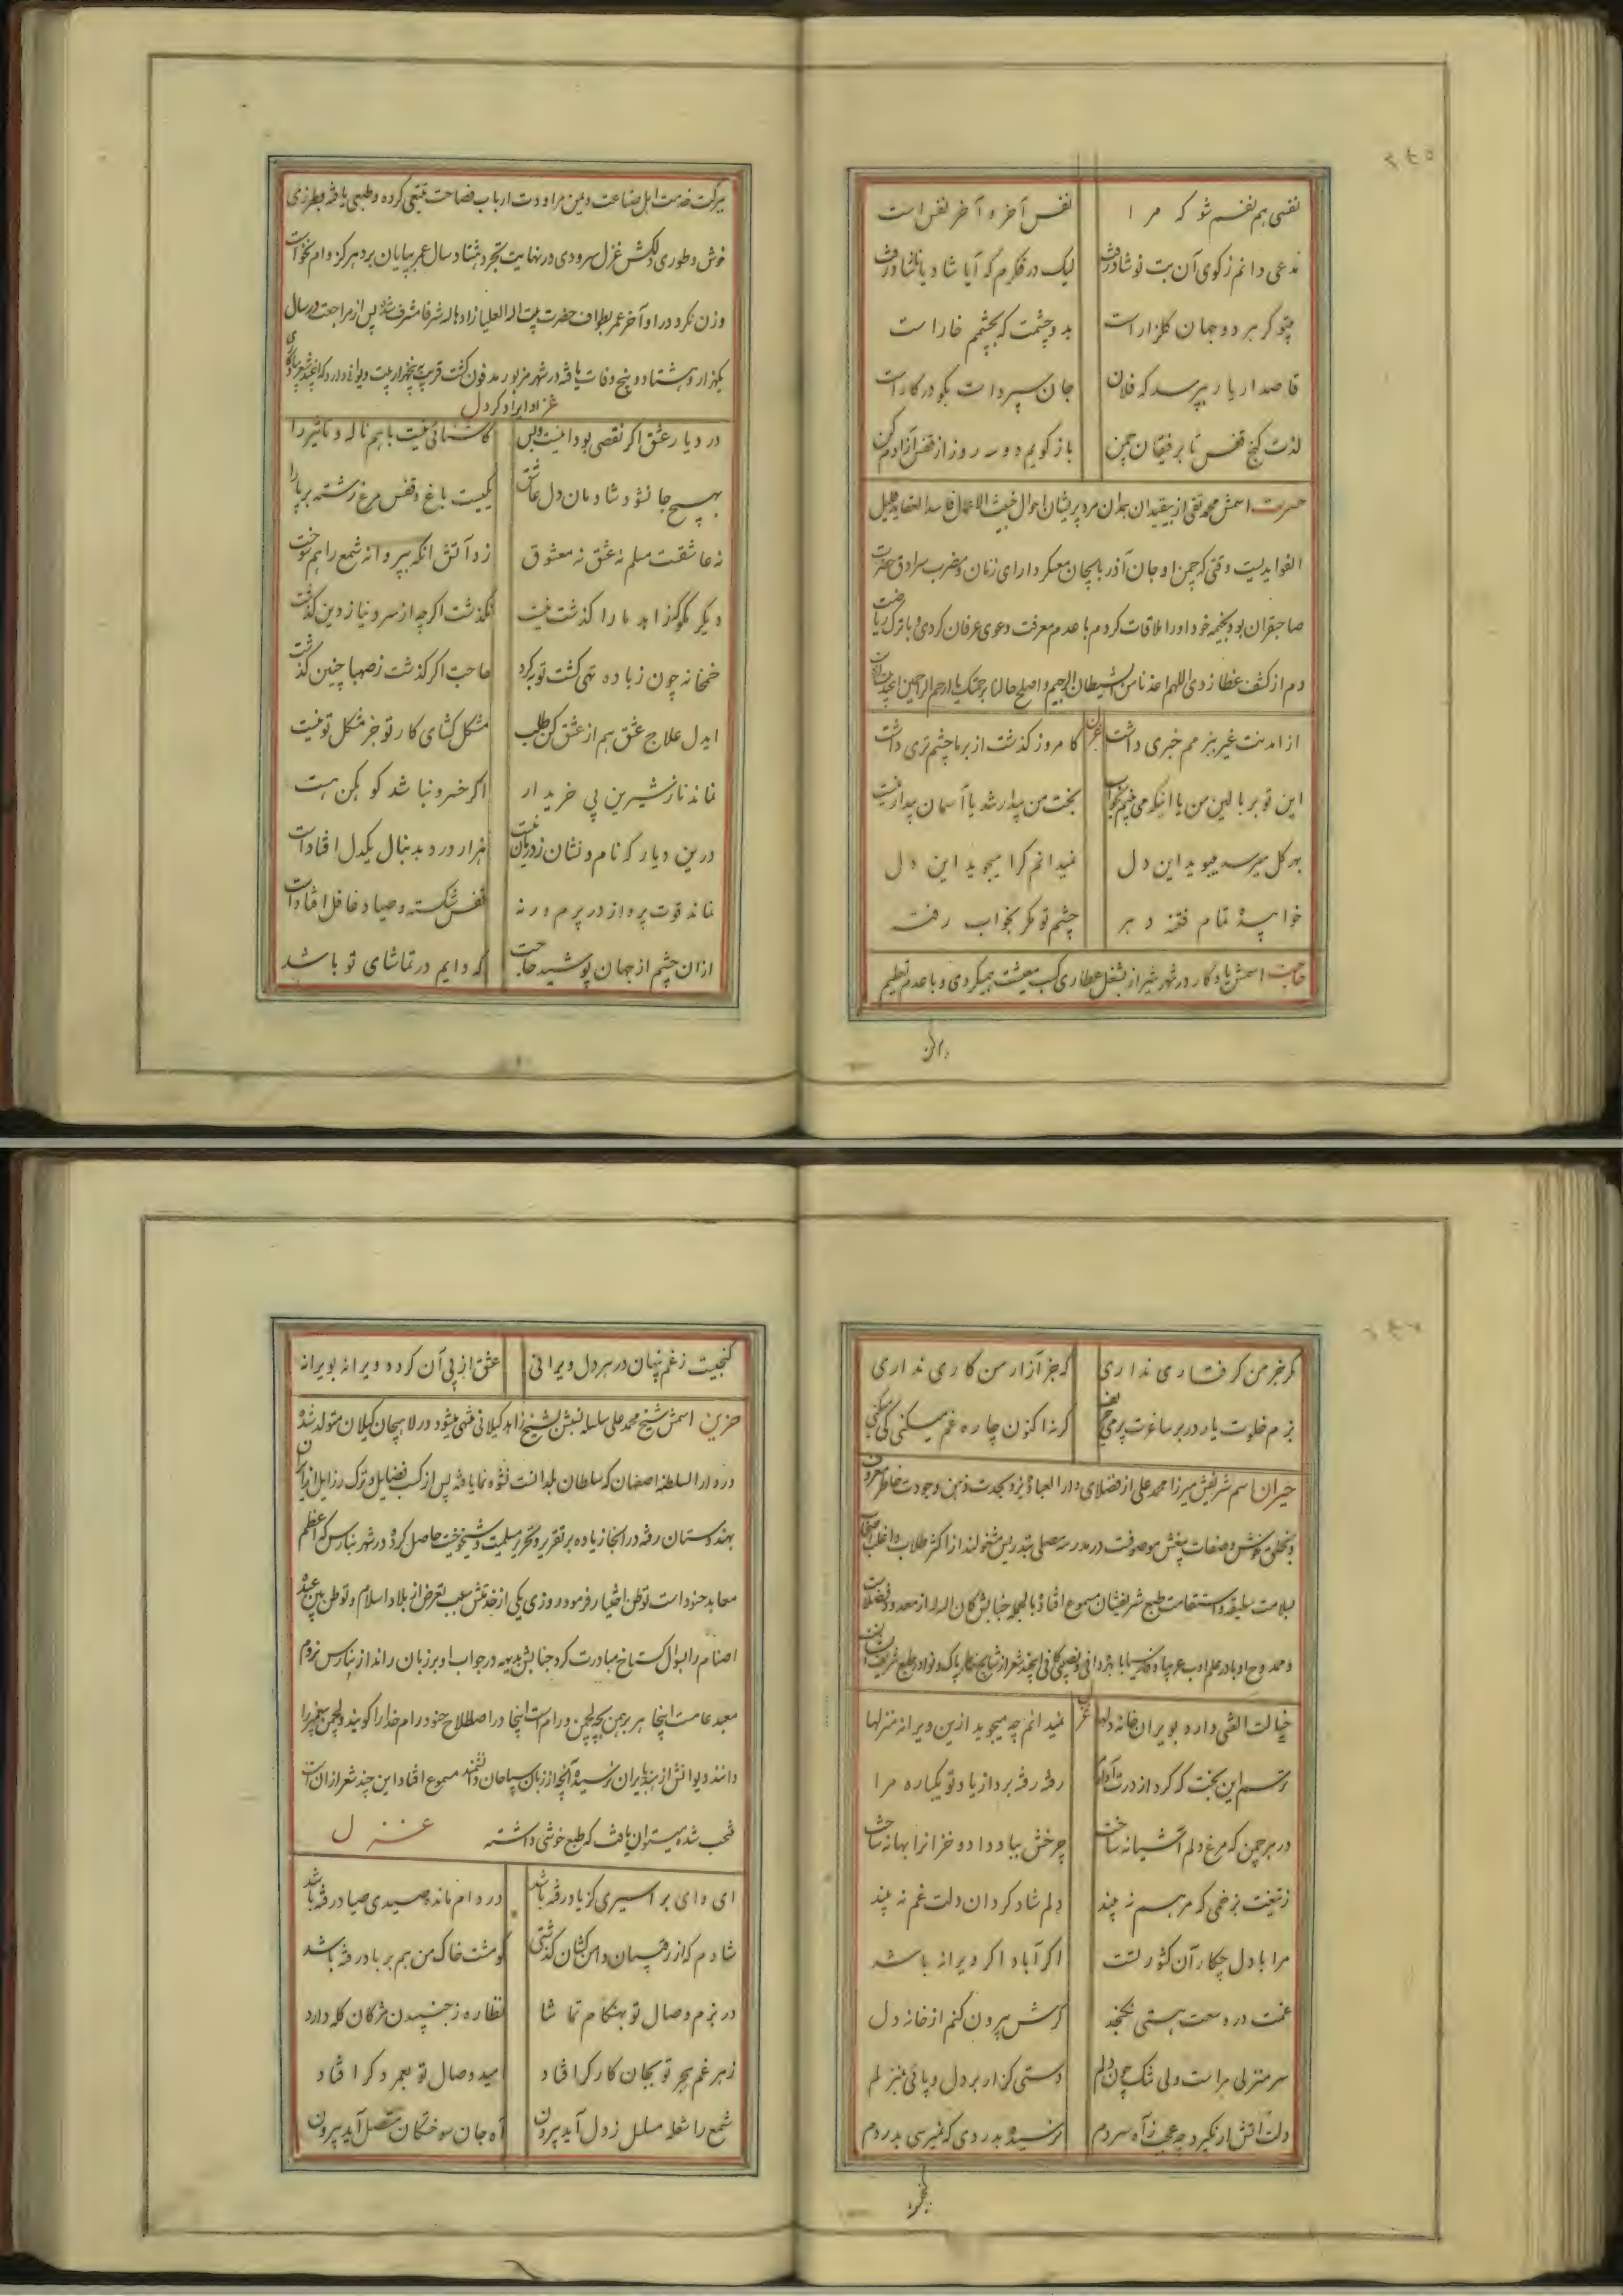 نفسی هم نفسم شو که مرا نفس آخر و آخر نفس است
مدعی دانم ز کوی آن بت نوشاد رفت لیک در فکرم که آیا شاد یا ناشاد رفت
بیتو گر هر دو جهان گلزار است بدو چشمت که بچشمم خار است
قاصد ار یار بپرسد که فلان جان سپرد است بگو در کار است
لذت کنج قفس تا برفیقان چمن باز گویم دو سه روز از قفس آزادم کن
حسرت اسمش محمد تقی از سیدان همدان مرد پریشان احوال خبیث الاعمال فاسد العقاید قلیل
الفوایدیست وقتی که چمن اوجان آذربایجان معسکر دارای زمان و مضرب سرادق حضرت
صاحبقران بود بخیمه خود او را ملاقات کردم با عدم معرفت دعوی عرفان کردی و با ترک ریاضت
دم از کشف غطا زدی اللهم اعذنا من الشیطان الرجیم و اصلح حالنا برحمتک یا ارحم الراحمین
از آمدنت غیر ببزمم خبری داشت غزل کامروز گذشت از بر ما چشم تری داشت
این تو بر بالین من یا اینکه می بینم بخواب بخت من بیدار شد یا آسمان بیدار نیست
بهر گل میرسد میبوید این دل نمیدانم کرا میجوید این دل
خوابیدهٔ تمام فتنه دهر چشم تو مگر بخواب رفت
حاجت اسمش یادگار در شهر شیراز بشغل عطاری کسب معیشت همیکردی و با عدم تعلیم
ببرکت خدمت اهل صناعت و یمن مراودت ارباب فصاحت تتبعی کرده و طبعی یافته بطرزی
خوش و طوری دلکش غزل سرودی در نهایت تجرد هشتاد سال عمر بپایان برد هرگز وام نخواست
و زن نکرد در اواخر عمر بطواف حضرت بیت الله العلیا زادها الله شرفا مشرف شد پس از مراجعت در سال
یکهزار و هشتاد و پنج وفات یافته در شهر مزبور مدفون گشت قریب بپنجهزار بیت دیوانی دارد که
غزل او ایراد کردل
در دیار عشق اگر نقصی بود اینست و بس کاشنائی نیست با هم ناله و تاثیر را
بهیچ جا نشود شادمان دل عاشق یکیست باغ و قفس مرغ رشته بر پا را
نه عاشقت مسلم نه عشق نه معشوق زد آتش آنکه بپروانه شمع را هم سوخت
دیگر مگو که زاهد ما را گذشت نیست نگذشت اگر چه از سر دنیا ز دین گذشت
خمخانه چون ز باده تهی گشت توبه کرد حاجت اگر گذشت ز صهبا چنین گذشت
ایدل علاج عشق هم از عشق کن طلب مشکل گشای کار تو جز مشکل تو نیست
نماند ناز شیرین بی خریدار اگر خسرو نباشد کوهکن هست
درین دیار که نام و نشان ز درمان نیست هزار درد بدنبال یکدل افتادست
نماند قوت پرواز در پرم ورنه قفس شکسته و صیاد غافل افتادست
از آن چشم از جهان پوشید حاجت که دایم در تماشای تو باشد
مگر جز من گرفتاری نداری که جز آزار من کاری نداری
بزم خلوت یار در بر ساغرت پر می گر نه اکنون چاره غم میکنی کی میکنی
حیران اسم شریفش میرزا محمد علی از فضلای دارالعباده یزد بحدت ذهن و جودت خاطر معروف
و بخلق خوش و صفات بیغش موصوفست در مدرسه مصلی بتدریس مشغولند از اکثر طلاب و اغلب اصحاب
سلامت سلیقه و استقامت طبع شریفشان مسموع افتاده بالجمله جنابش کان الله له از معدود فضلاست
خیالت الفتی دارد بویران خانه دلها نمیدانم چه میجوید ازین ویرانه منزلها
ترسم این بخت که کرد از درت آواره رفته رفته برد از یاد تو یکباره مرا
در هر چمن که مرغ دلم آشیانه ساخت چرخش بباد داد و خزانرا بهانه ساخت
ز تیغت زخمی که مرهم نه بیند دلم شاد کردان دلت غم نه بیند
مرا با دل چکار آن کشور تست اگر آباد اگر ویرانه باشد
غمت در وسعت هستی نگنجد گرش بیرون کنم از خانه دل
سر منزلی مراست ولی تنگ چون دلم دستی گذار بر دل و پائی بمنزلم
دلت آتش ار نگیرد چه عجب ز آه سردم نرسیدهٔ بدردی که نمیرسی بدردم
گنجیست ز غم پنهان در هر دل ویرانی عشق از پی آن کرده ویرانه بویرانه
حزین اسمش شیخ محمد علی سلسله نسبش بشیخ زاهد گیلانی منتهی میشود در لاهیجان گیلان متولد شده
در دارالسلطنه اصفهان که سلطان بلدانست نشوونما یافته پس از کسب فضایل و ترک رذایل از ایران
بهندوستان رفته در آنجا زیاده بر تقریر و تحریر مسلمیت و شیخوخیت حاصل کرده در شهر بنارس که اعظم
معابد هنود است توطن اختیار فرمود روزی یکی از خدمتش سبب تعرض از بلاد اسلام و توطن بین عبده
اصنام را سوال گستاخ مبادرت کرد جنابش بدیهه در جواب او بر زبان راند از بنارس نروم
معبد عامست اینجا هر برهمن بچه لچمن و رام است اینجا در اصطلاح هنود رام خدا را گویند و لچمن پیغمبر را
دانند دیوانش از هند بایران نرسیده آنچه از زبان سیاحان دانشمند مسموع افتاد این چند شعر از آن است
منتخب شده میتوان یافت که طبع خوشی داشته غزل
ای وای بر اسیری کز یاد رفته باشد در دام مانده صیدی صیاد رفته باشد
شادم که از رقیبان دامن کشان گذشتی گو مشت خاک من هم بر باد رفته باشد
در بزم وصال تو بهنگام تماشا نظاره ز جنبیدن مژگان گله دارد
زهر غم هجر تو بجان کارگر افتاد امید وصال تو بعمر دگر افتاد
شمع را شعله مسلسل ز دل آید بیرون آه جان سوختگان متصل آید بیرون